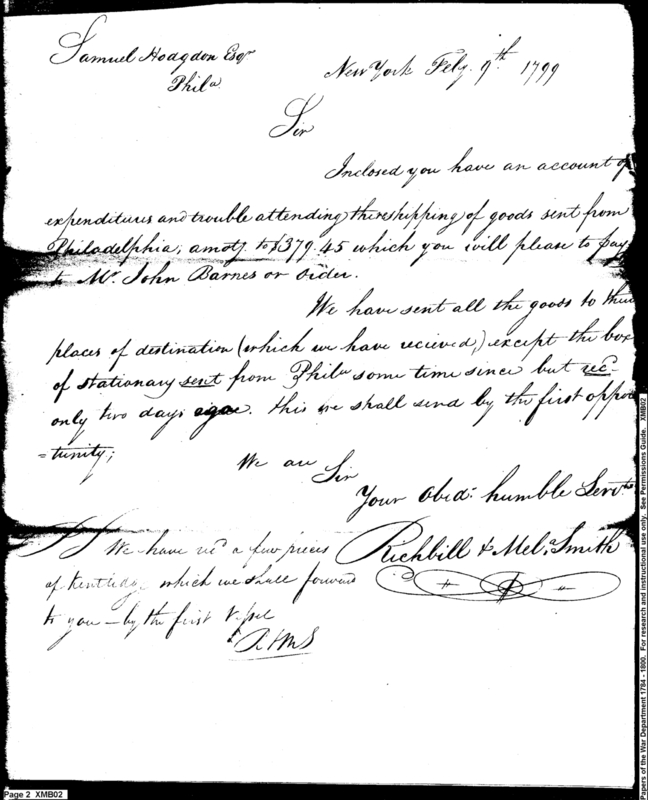 Samuel Hodgdon Esqr
Phila
New York Feby. 9th. 1799
Sir
Inclosed you have an account of
expenditures and trouble attending the reshipping of goods sent from
Philadelphia, amotg. to $379.45 which you will please to pay
to Mr. John Barnes or order.
We have sent all the goods to their
places of destination (which we have recieved,) except the box
of stationary sent from Phila some time since but recd
only two days ago. this we shall send by the first oppor
=tunity;
We are Sir
Your Obedt. humble Servts
Richbill & Mel. Smith
We have recd a few pieces
of which we shall forward
to you — by the first Vessel
R & M S
Page 2 XMB02
Papers of the War Department 1784 - 1800. For research and instructional use only. See Permissions Guide. XMB02